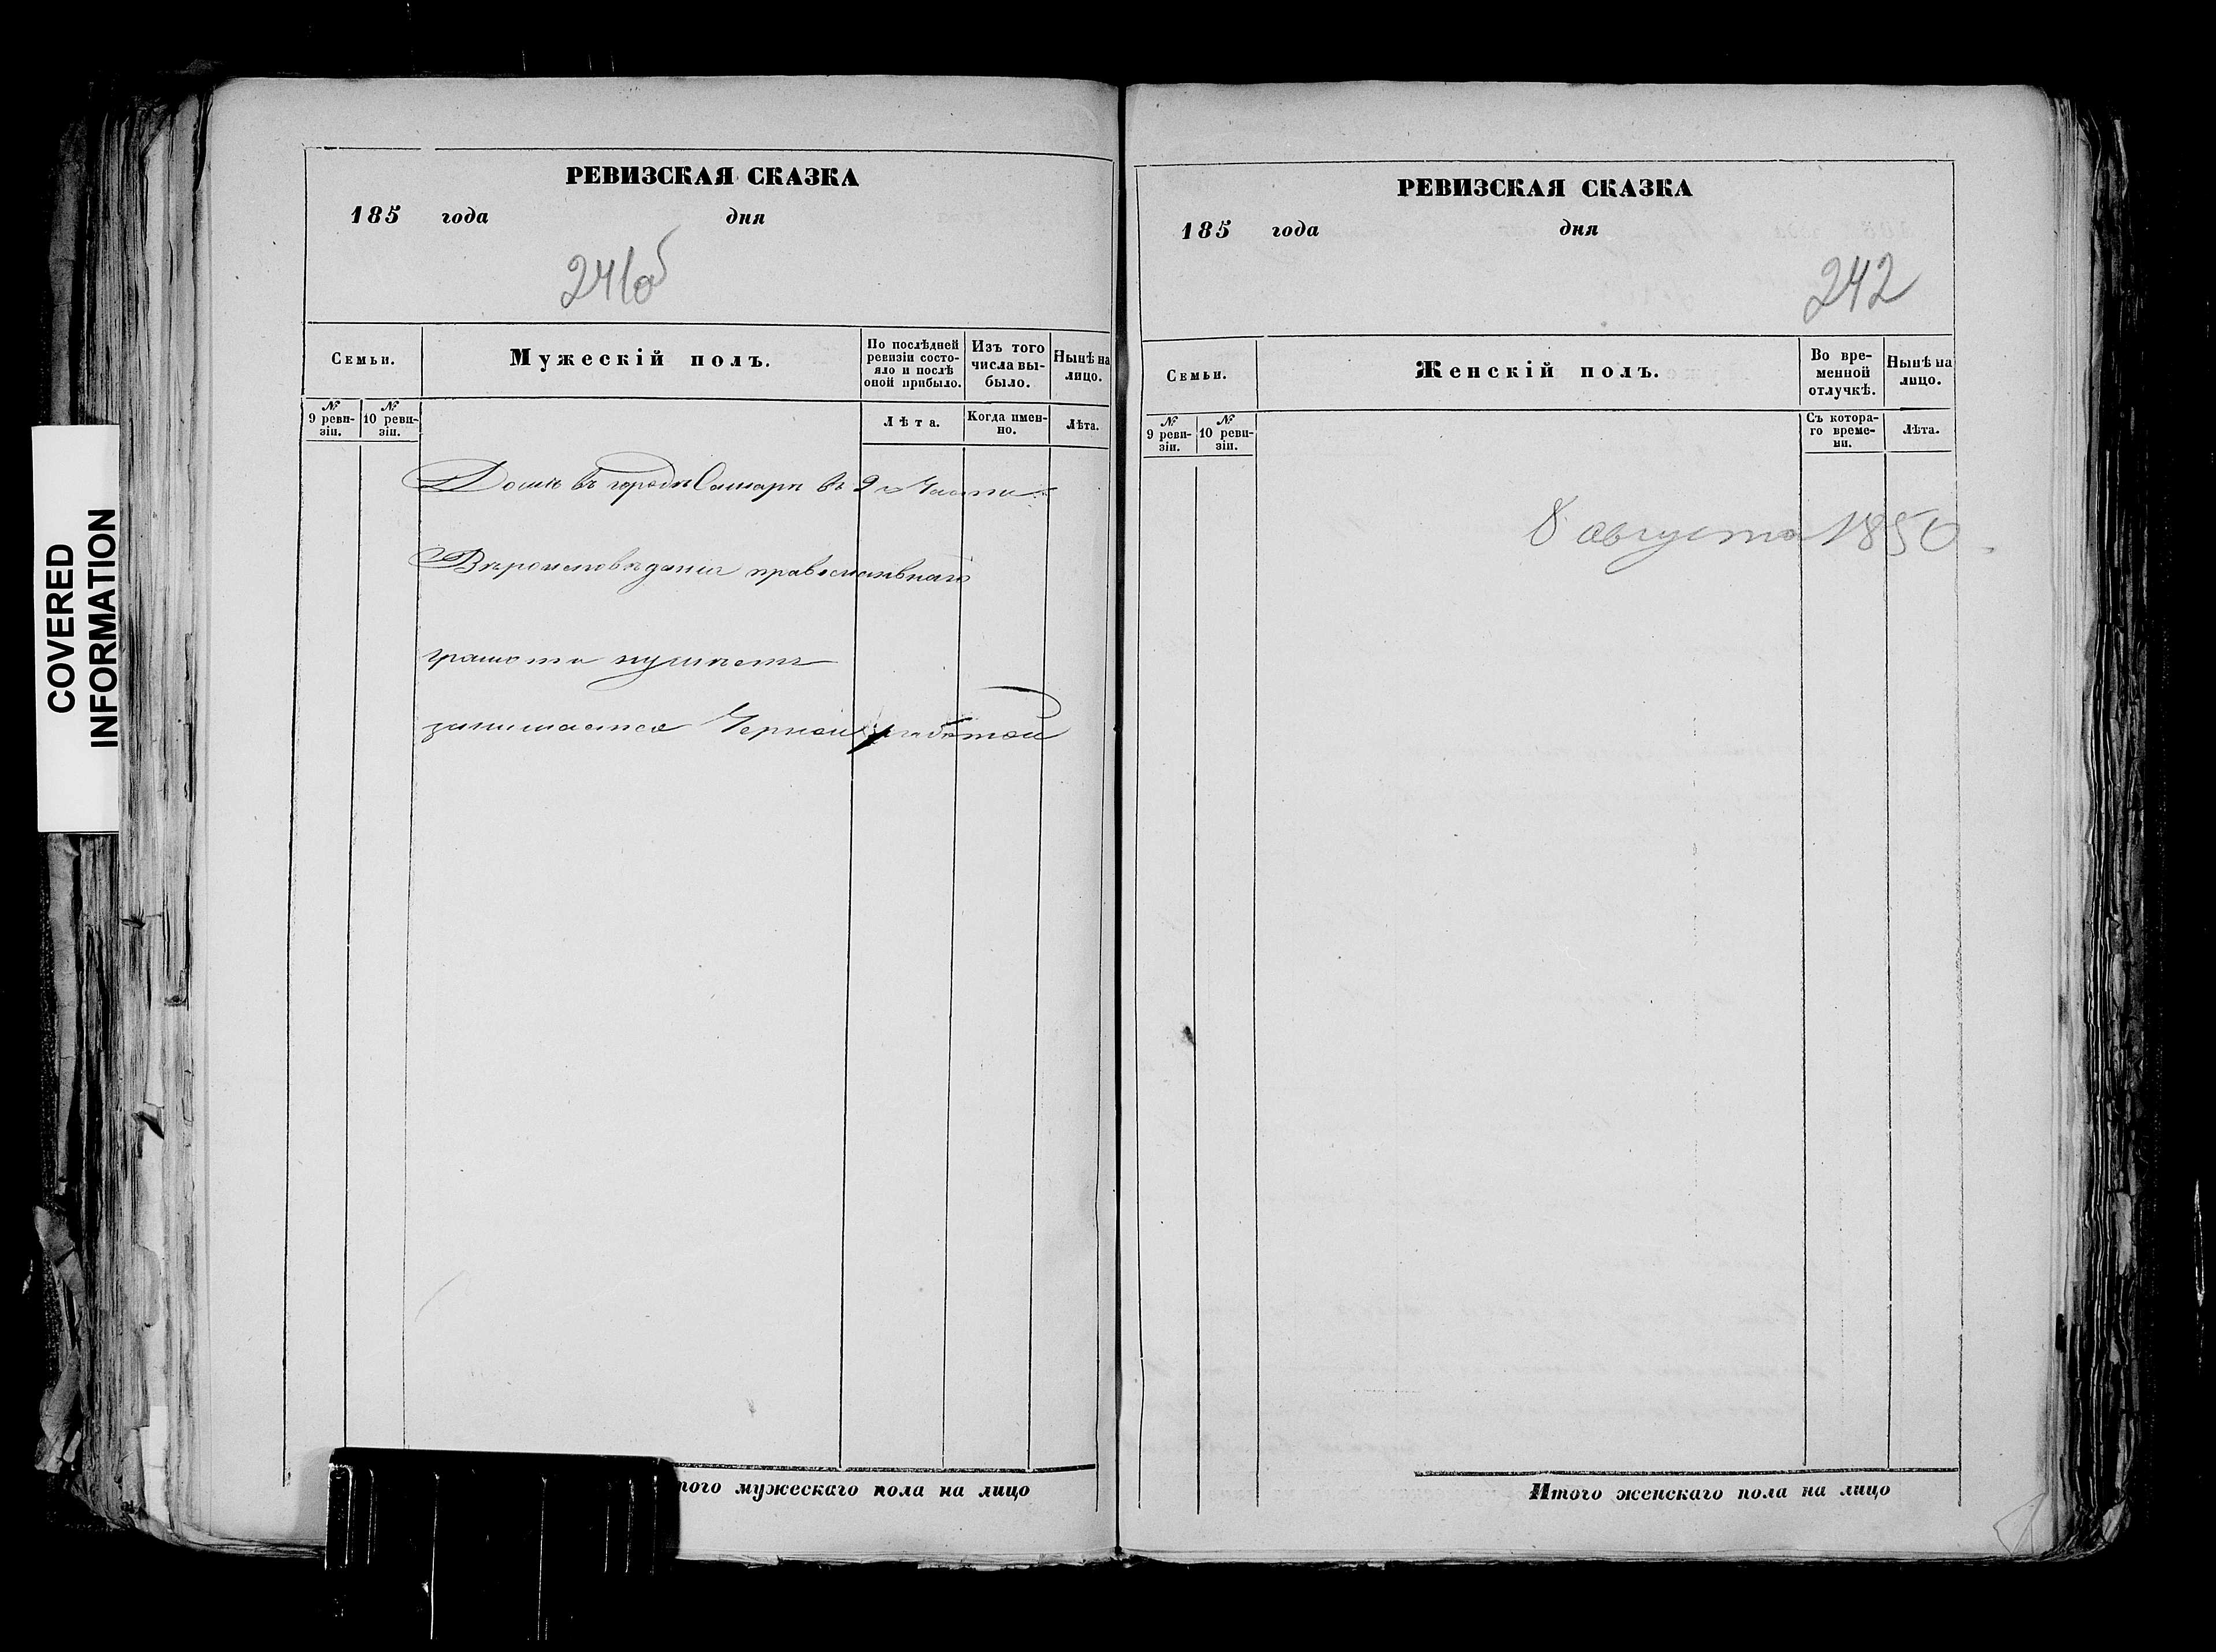 COVERED
INFORMATION
РЕВИЗСКАЯ СКАЗКА
185 года дня
241об
Семьи.
Мужескій полъ.
По послѣдней ревизіи состояло и послѣ оной прибыло.
Изъ того числа выбыло.
Нынѣ на лицо.
№ 9 ревизіи.
№ 10 ревизіи.
Лѣта.
Когда именно.
Лѣта.
Домъ въ городѣ Самарѣ во 2й Части
Вѣроисповѣданія православнаго
грамоти неумѣетъ
занимается Черной работой
того мужескаго пола на лицо
РЕВИЗСКАЯ СКАЗКА
185 года дня
242
Семьи.
Женскій полъ.
Во временной отлучкѣ.
Нынѣ на лицо.
№ 9 ревизіи.
№ 10 ревизіи.
Съ котораго времени.
Лѣта.
8 августа 1850
Итого женскаго пола на лицо